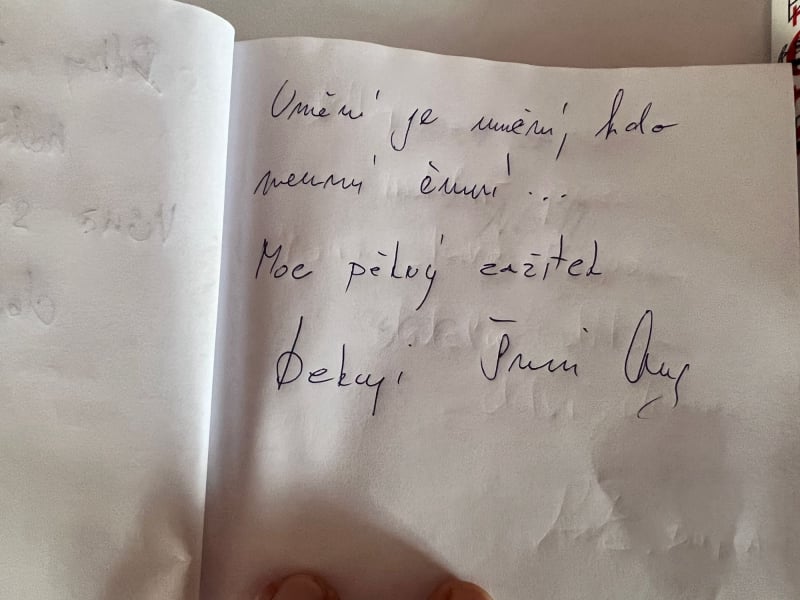 Umění je umění, kdo
neumí čumí...
Moc pěkný zažitek
Děkuji